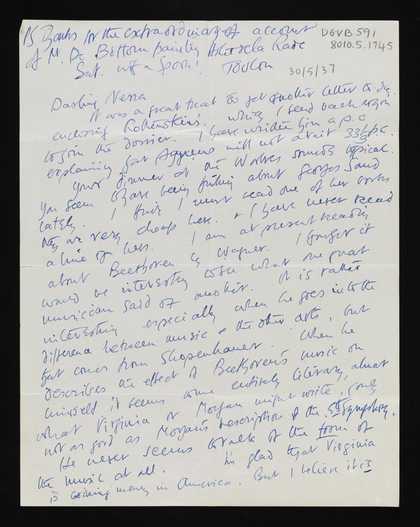 PS Thanks for the extraordinary account
of M. De
Sat. with a Spoon! Toulon
VGVB 591
8010.5.1745
30/5/37
Darling Nessa
It was a great treat to get another letter to day
enclosing Rothenstein's which I send back again
to join the dossier. I have written him a p.c
explaining that Agnews will not admit 33⅓ p.c.
Your dinner at the Woolves sounds typical.
You seem to have being talking about Georges Sand
lately. I think I must read one of her works
they are very cheap here. & I have never read
a line of hers. I am at present reading
about Beethoven by Wagner. I thought it
would be interesting to see what one great
musician said of another. It is rather
interesting especially when he goes into the
difference between music & the other arts, but
that comes from Shopenhauer. When he
describes the effect of Beethoven's music on
himself it seems some entirely literary, almost
what Virginia or Morgan might write, only
not as good as Morgan's description of the 5th symphony.
He never seems to talk of the form of
the music at all. I'm glad that Virginia
is making money in America. But I believe it is